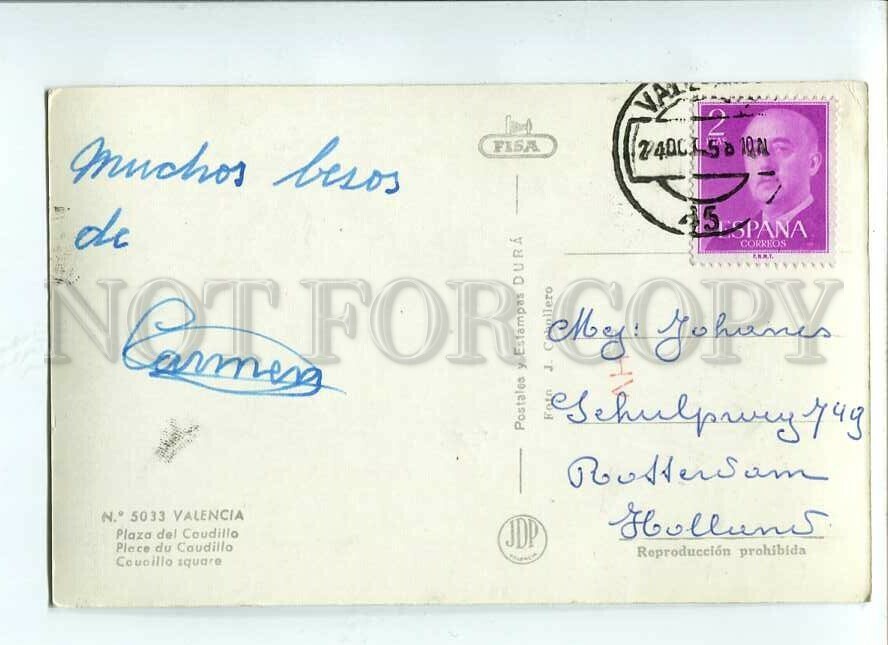 Muchos besos
de
Carmen
N.º 5033 VALENCIA
Plaza del Caudillo
Place du Caudillo
Caudillo square
FISA
Postales y Estampas DURÁ
Foto J. Caballero
JDP
24 OCT 58 10 N
45
2
PTAS
ESPAÑA
CORREOS
F.N.M.T.
Mej: Johanes
Schulpweg 749
Rotterdam
Holland
Reproducción prohibida
NOT FOR COPY